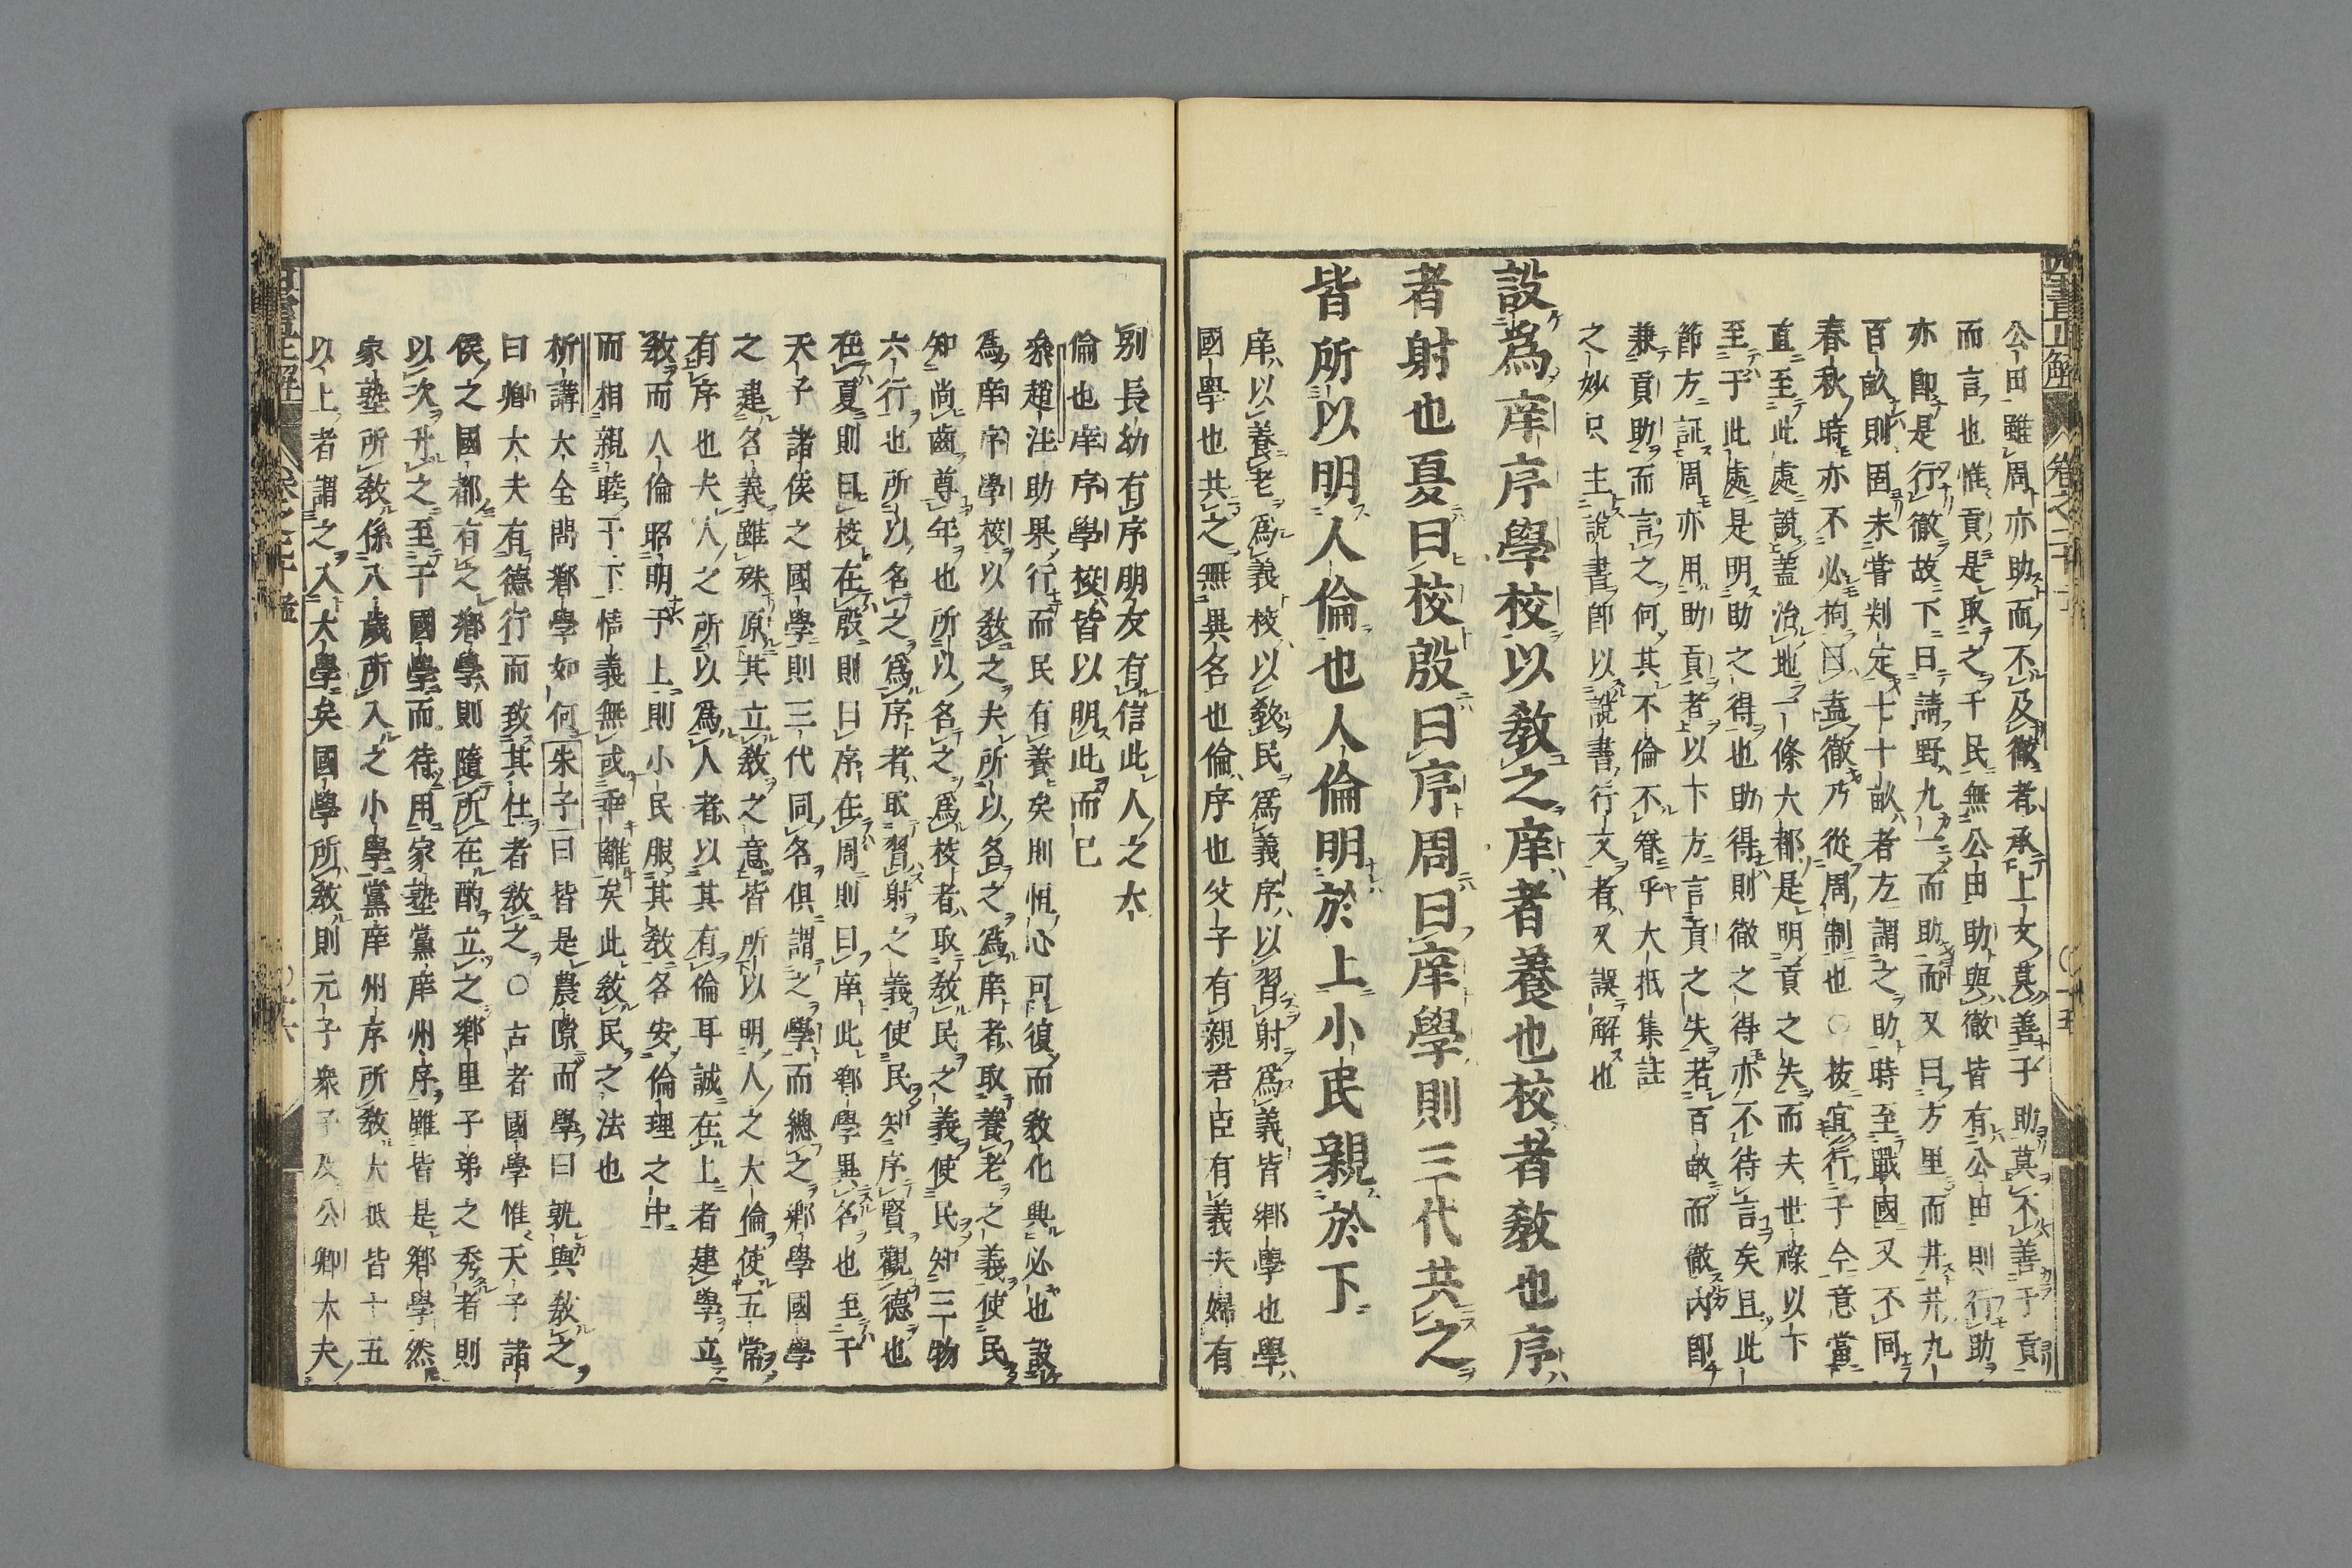 公田雖周亦助而不及徹者承上文莫善于助莫不善于貢
而言也惟貢是取之千民無公田助與徹皆有公田則行助
亦卽是行徹故下曰請野九一而助而又曰方里而井井九
百畝則固未嘗判定七十畝者方謂之助時至戰國又不同
春秋時亦不必拘曰盍徹乃從周制也○按宜行于今意當
直至此處說蓋治地一條大都是明貢之失而夫世祿以下
至于此處是明助之得也助得則徹之得亦不待言矣且此
節方証周亦用助貢者以下方言貢之失若百畝而徹內卽
兼貢助而言之何其不倫不簪乎大抵集註
之妙只主說書卽以說書行文者又誤解也
設爲庠序學校以敎之庠者養也校者敎也序
者射也夏曰校殷曰序周曰庠學則三代共之
皆所以明人倫也人倫明於上小民親於下
庠以養老爲義校以敎民爲義序以習射爲義皆鄉學也學
國學也共之無異名也倫序也父子有親君臣有義夫婦有
別長幼有序朋友有信此人之大
倫也庠序學校皆以明此而已
叅趙注助果行而民有養矣則恒心可復而敎化典必也設
爲庠序學校以敎之夫所以名之爲庠者取養老之義使民
知尚齒尊年也所以名之爲校者取敎民之義使民知三物
六行也所以名之爲序者取習射之義使民知序賢觀德也
在夏則曰校在殷則曰序在周則曰庠此鄉學異名也至于
天子諸侯之國學則三代同名俱謂之學而總之鄉學國學
之建名義雖殊原其立敎之意皆所以明人之大倫使五常
有序也夫人之所以爲人者以其有倫耳誠在上者建學立
敎而人倫昭明于上則小民服其敎各安倫理之中
而相親睦于下情義無或乖離矣此敎民之法也
析講大全問鄉學如何朱子曰皆是農隙而學曰孰與敎之
曰鄉大夫有德行而致其仕者敎之○古者國學惟天子諸
侯之國都有之鄉學則隨所在酌立之鄉里子弟之秀者則
以次升之至于國學而待用家塾黨庠州序雖皆是鄉學然
家塾所敎係八歲所入之小學黨庠州序所敎大抵皆十五
以上者謂之入大學矣國學所敎則元子衆子及公卿大夫
四書正解
卷之二十
十五